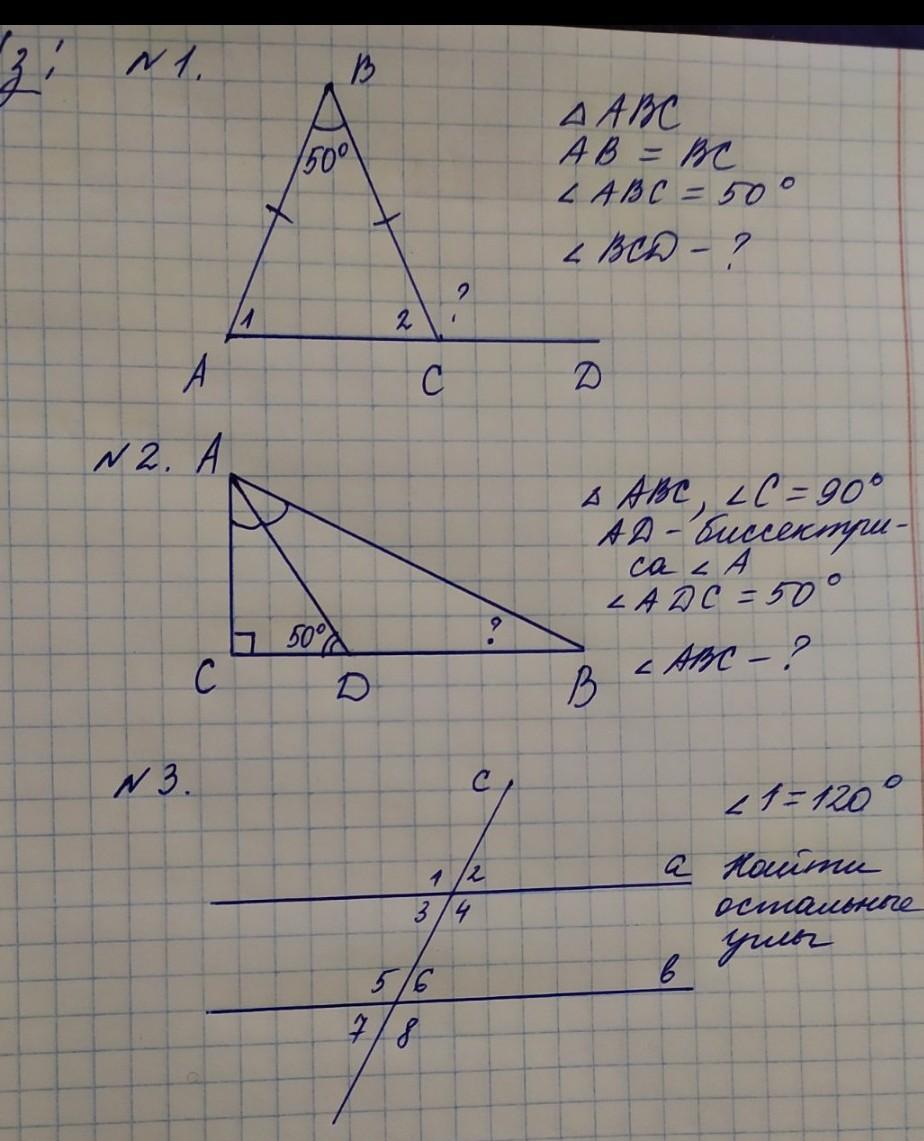 №1.
B
50°
1 2 ?
A C D
△ ABC
AB = BC
∠ ABC = 50°
∠ BCD - ?
№2. A
50° ?
C D B
△ ABC, ∠C = 90°
AD - биссектри-
са ∠ A
∠ ADC = 50°
∠ ABC - ?
№3.
c
1 2 a
3 4
5 6 в
7 8
∠1 = 120°
Найти
остальные
углы